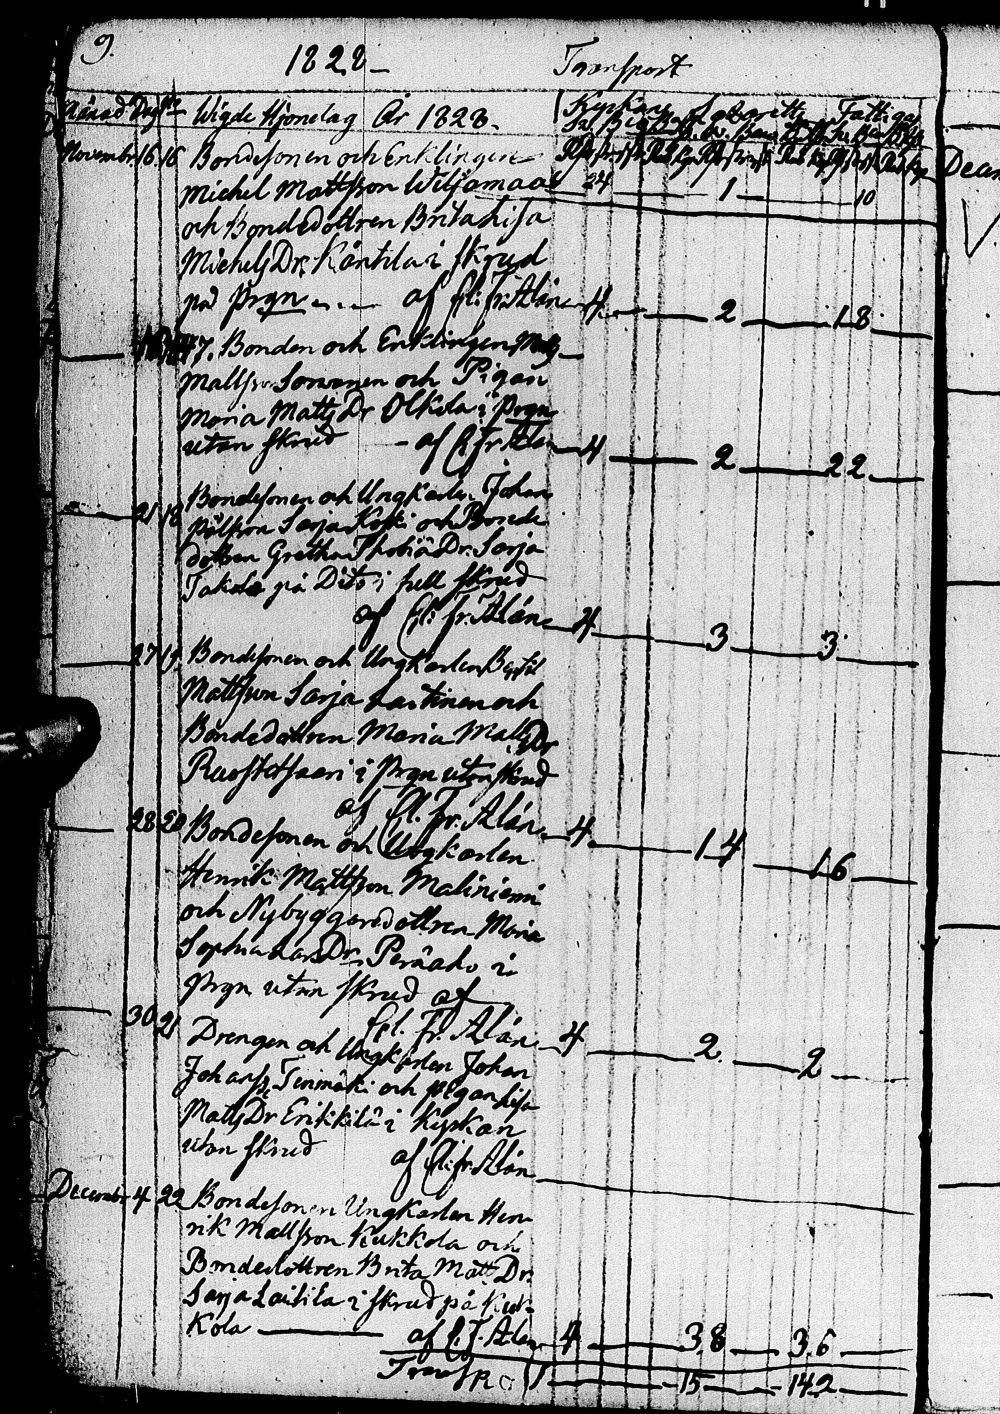 9.
1828 Transport
Månad Dag No Wigde Hjonelag År 1828. Kyrkan Lazarett Fattige
Novembr 16 16 Bondesonen och Enklingen
Michel Mattsson Wiljamaa 24 1 10
och Bondedottren Brita Lisa
Michels Dr: Käntilä i skrud
på prgn af Cl: Fr: Alán 4 2 18
17. Bonden och Enklingen Matts
Mattsson Sorvanen och Pigan
Maria Matts Dr Olkola i prgn
utan skrud af Cl. Fr. Alan 4 2 22
21 18 Bondesonen och Ungkarlen Johan
Pålsson Sarja Koski och Bonde
dottren Gretha Thobiä Dr. Sarja
Jakola på Dito i hell skrud
af Cl: fr: Alán 4 3 3
27 19 Bondesonen och Ungkarlen Bertil
Mattsson Sarja Lastinen och
Bondedottren Maria Matts Dr
i prgn utan skrud
af Cl. Fr. Alán 4 14 16
28 20 Bondesonen och Ungkarlen
Henrik Mattsson Maliniemi
och Nybyggaredottren Maria
Sophia Lars Dr. Peräaho i
prgn utan skrud af
Cl. Fr. Alán 4 2 2
30 21 Drengen och Ungkarlen Johan
Johanss: och pigan Lisa
Matts Dr Erikkilä i Kyrkan
utan skrud af Cl: fr: Alán
December 4 22 Bondesonen Ungkarlen Hen
rik Mattsson Kukkola och
Bondedottren Brita Matts Dr.
Sarja Laitila i skrud på Kuk
kola af C. F. Alan 4 38 36
Transport 15 142
Decem